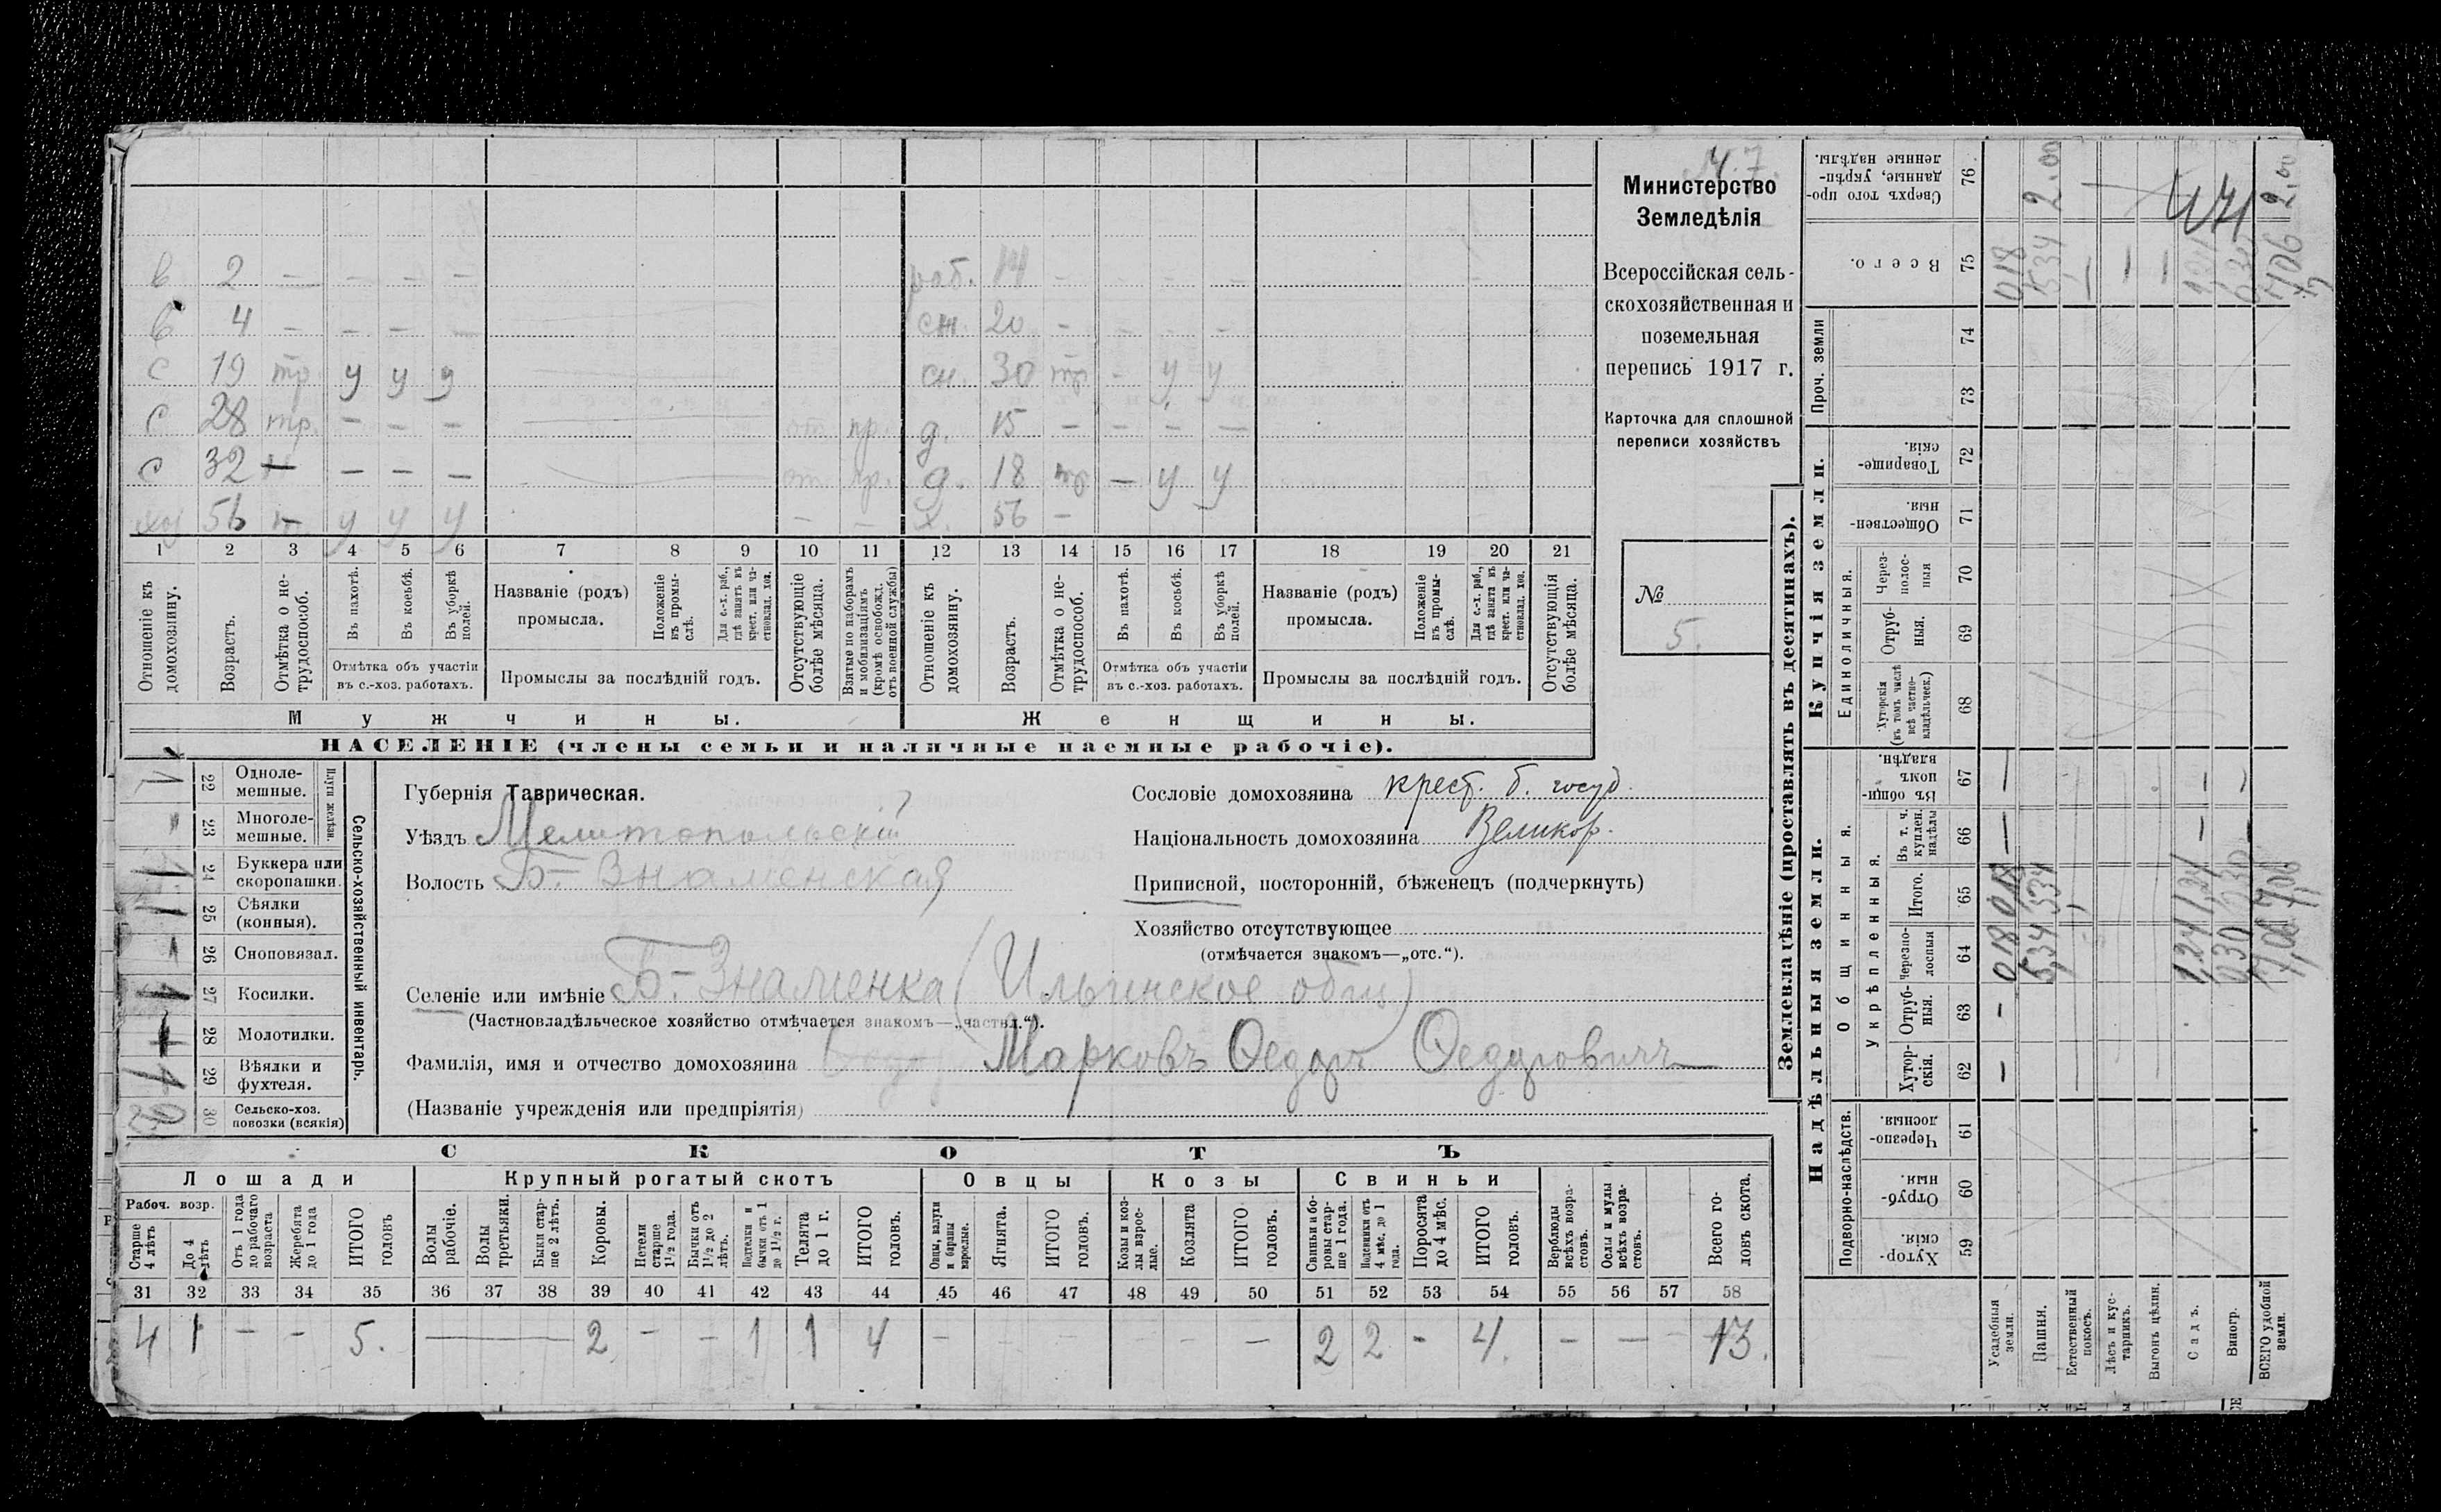 Министерство
Земледѣлія
Всероссійская сель-
скохозяйственная и
поземельная
перепись 1917 г.
Карточка для сплошной
переписи хозяйствъ
№
5.
в 2 — — — — раб. 14 — — — —
в 4 — — — — сн. 20 — — — —
с 19 тр. у у у сн. 30 тр — у у
с 28 тр. — — — от пр. д. 15 — — — —
с 32 — — — от. пр. д. 18 тр — у у
хоз 56 у у у — — х. 56 —
1 2 3 4 5 6 7 8 9 10 11 12 13 14 15 16 17 18 19 20 21
Отношеніе къ домохозяину.
Возрастъ.
Отмѣтка о не-трудоспособ.
Въ пахотѣ.
Въ косьбѣ.
Въ уборкѣ полей.
Отмѣтка объ участіи
въ с.-хоз. работахъ.
Названіе (родъ)
промысла.
Положеніе въ промы-слѣ.
Для с.-х. раб., гдѣ занятъ въ крест. или ча-стновлад. хоз.
Промыслы за послѣдній годъ.
Отсутствующіе болѣе мѣсяца.
Взятые по наборамъ и мобилизаціямъ (кромѣ освобожд. отъ военной службы)
Отношеніе къ домохозяину.
Возрастъ.
Отмѣтка о не-трудоспособ.
Въ пахотѣ.
Въ косьбѣ.
Въ уборкѣ полей.
Отмѣтка объ участіи
въ с.-хоз. работахъ.
Названіе (родъ)
промысла.
Положеніе въ промы-слѣ.
Для с.-х. раб., гдѣ занята въ крест. или ча-стновлад. хоз.
Промыслы за послѣдній годъ.
Отсутствующія болѣе мѣсяца.
Мужчины.
Женщины.
НАСЕЛЕНІЕ (члены семьи и наличные наемные рабочіе).
Сельско-хозяйственный инвентарь.
Плуги желѣзн.
22 Однолемешные. 1
23 Многолемешные. "
24 Буккера или скоропашки. 1
25 Сѣялки (конныя). 1
26 Сноповязал.
27 Косилки. 1
28 Молотилки.
29 Вѣялки и фухтеля. 1
30 Сельско-хоз. повозки (всякія)
Губернія Таврическая.
Уѣздъ Мелитопольскій
Волость Б-Знаменская
Селеніе или имѣніе Б-Знаменка (Ильинское общ)
(Частновладѣльческое хозяйство отмѣчается знакомъ—„частвл.“).
Фамилія, имя и отчество домохозяина Марковъ Ѳедоръ Ѳедоровичъ
(Названіе учрежденія или предпріятія)
Сословіе домохозяина крест. б. госуд.
Національность домохозяина Великор.
Приписной, посторонній, бѣженецъ (подчеркнуть)
Хозяйство отсутствующее
(отмѣчается знакомъ—„отс.“).
СКОТЪ
Лошади
Крупный рогатый скотъ
Овцы
Козы
Свиньи
Рабоч. возр.
Старше 4 лѣтъ
До 4 лѣтъ
Отъ 1 года до рабочаго возраста
Жеребята до 1 года
ИТОГО головъ
Волы рабочіе.
Волы третьяки.
Быки стар-ше 2 лѣтъ.
Коровы.
Нетели старше 1½ года.
Бычки отъ 1½ до 2 лѣтъ.
Подтелки и бычки отъ 1 до 1½ г.
Телята до 1 г.
ИТОГО головъ.
Овцы, валухи и бараны взрослые.
Ягнята.
ИТОГО головъ.
Козы и коз-лы взрос-лые.
Козлята
ИТОГО головъ.
Свиньи и бо-ровы стар-ше 1 года.
Подсвинки отъ 4 мѣс. до 1 года.
Поросята до 4 мѣс.
ИТОГО головъ.
Верблюды всѣхъ возра-стовъ.
Ослы и мулы всѣхъ возра-стовъ.
Всего го-ловъ скота.
31 32 33 34 35 36 37 38 39 40 41 42 43 44 45 46 47 48 49 50 51 52 53 54 55 56 57 58
4 1 — — 5. — 2 — — 1 1 4 — — — — — — 2 2 — 4. — — — 13.
Землевладѣніе (проставлять въ десятинахъ).
Надѣльныя земли.
Купчія земли.
Проч. земли
Подворно-наслѣдств.
Общинныя.
Укрѣпленныя.
Единоличныя.
Хутор-скія. 59
Отруб-ныя. 60
Черезпо-лосныя 61
Хутор-скія. 62
Отруб-ныя. 63
Черезпо-лосныя 64
Итого. 65
Въ т. ч. куплен. надѣлы 66
Въ общин-номъ владѣн. 67
Хуторскія (въ томъ числѣ всѣ частно-владѣльческ.) 68
Отруб-ныя. 69
Через-полос-ныя 70
Обществен-ныя 71
Товарище-скія. 72
73
74
Всего. 75
Сверхъ того про-данные, укрѣп-ленные надѣлы. 76
Усадебныя земли. — — 018 018 — — 018
Пашня. 5,34 5,34 5,34 2.00
Естественный покосъ.
Лѣсъ и кус-тарникъ.
Выгонъ цѣлин.
Садъ. 1,24 1,24
Виногр. 0,30 0,30
ВСЕГО удобной земли. 7,06 7,06 7,06 2,00